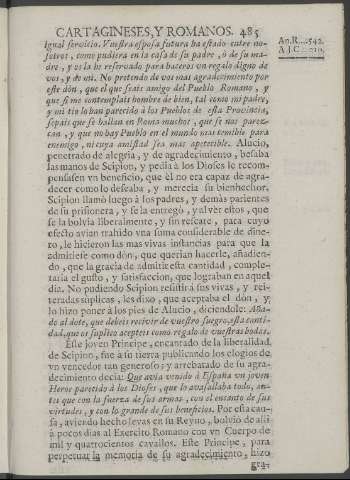 CARTAGINESES, Y ROMANOS. 485
An.R...542.
A.J.C...210.
igual servicio. Vuestra esposa futura ha estado entre no-
sotros, como pudiera en la casa de su padre, ò de su ma-
dre, y os la he reservado para haceros un regalo digno de
vos, y de mi. No pretendo de vos mas agradecimiento por
este dòn, que el que seais amigo del Pueblo Romano, y
que si me contemplais hombre de bien, tal como mi padre,
y mi tio lo han parecido à los Pueblos de esta Provincia,
sepais que se hallan en Roma muchos, que se nos parez-
can, y que no hay Pueblo en el mundo mas temible para
enemigo, ni cuya amistad sea mas apetecible. Alucio,
penetrado de alegria, y de agradecimiento, besaba
las manos de Scipion, y pedia à los Dioses le recom-
pensasen un beneficio, que èl no era capaz de agra-
decer como lo deseaba, y merecia su bienhechor.
Scipion llamò luego à los padres, y demàs parientes
de su prisionera, y se la entregò, y al vèr estos, que
se la bolvia liberalmente, y sin rescate, para cuyo
efecto avian trahido una suma considerable de dine-
ro, le hicieron las mas vivas instancias para que la
admitiese como dòn, que querian hacerle, añadien-
do, que la gracia de admitir esta cantidad, comple-
taria el gusto, y satisfaccion, que lograban en aquel
dia. No pudiendo Scipion resistir à sus vivas, y rei-
teradas suplicas, les dixo, que aceptaba el dòn, y
lo hizo poner à los pies de Alucio, diciendole: Aña-
do al dote, que debeis recivir de vuestro suegro, esta canti-
dad, que os suplico acepteis como regalo de vuestras bodas.
Este joven Principe, encantado de la liberalidad
de Scipion, fue à su tierra publicando los elogios de
un vencedor tan generoso; y arrebatado de su agra-
decimiento decia: Que avia venido à España un joven
Heroe parecido à los Dioses, que lo avasallaba todo, an-
tes que con la fuerza de sus armas, con el encanto de sus
virtudes, y con lo grande de sus beneficios. Por esta cau-
sa, aviendo hecho levas en su Reyno, bolviò de allì
à pocos dias al Exercito Romano con un Cuerpo de
mil y quatrocientos cavallos. Este Principe, para
perpetuar la memoria de su agradecimiento, hizo
gra-